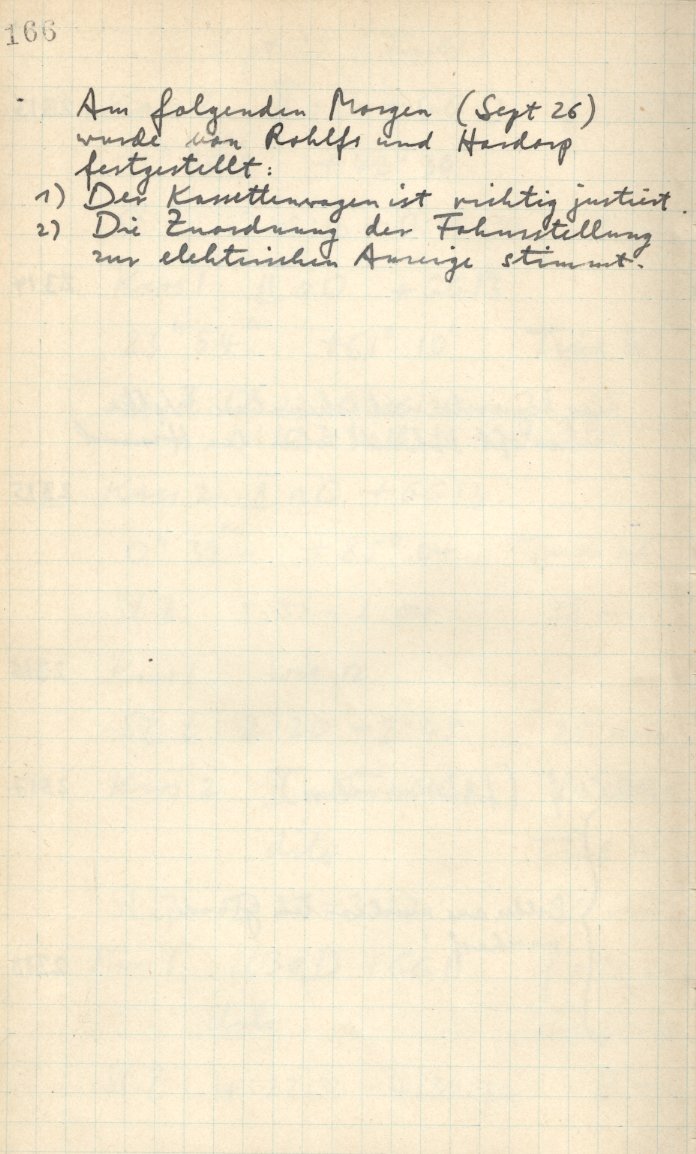 166
Am folgenden Morgen (Sept 26)
wurde von Rohlfs und Hardorp
festgestellt:
1) Der Kassettenwagen ist richtig justiert.
2) Die Zuordnung der Fokusstellung
zur elektrischen Anzeige stimmt.